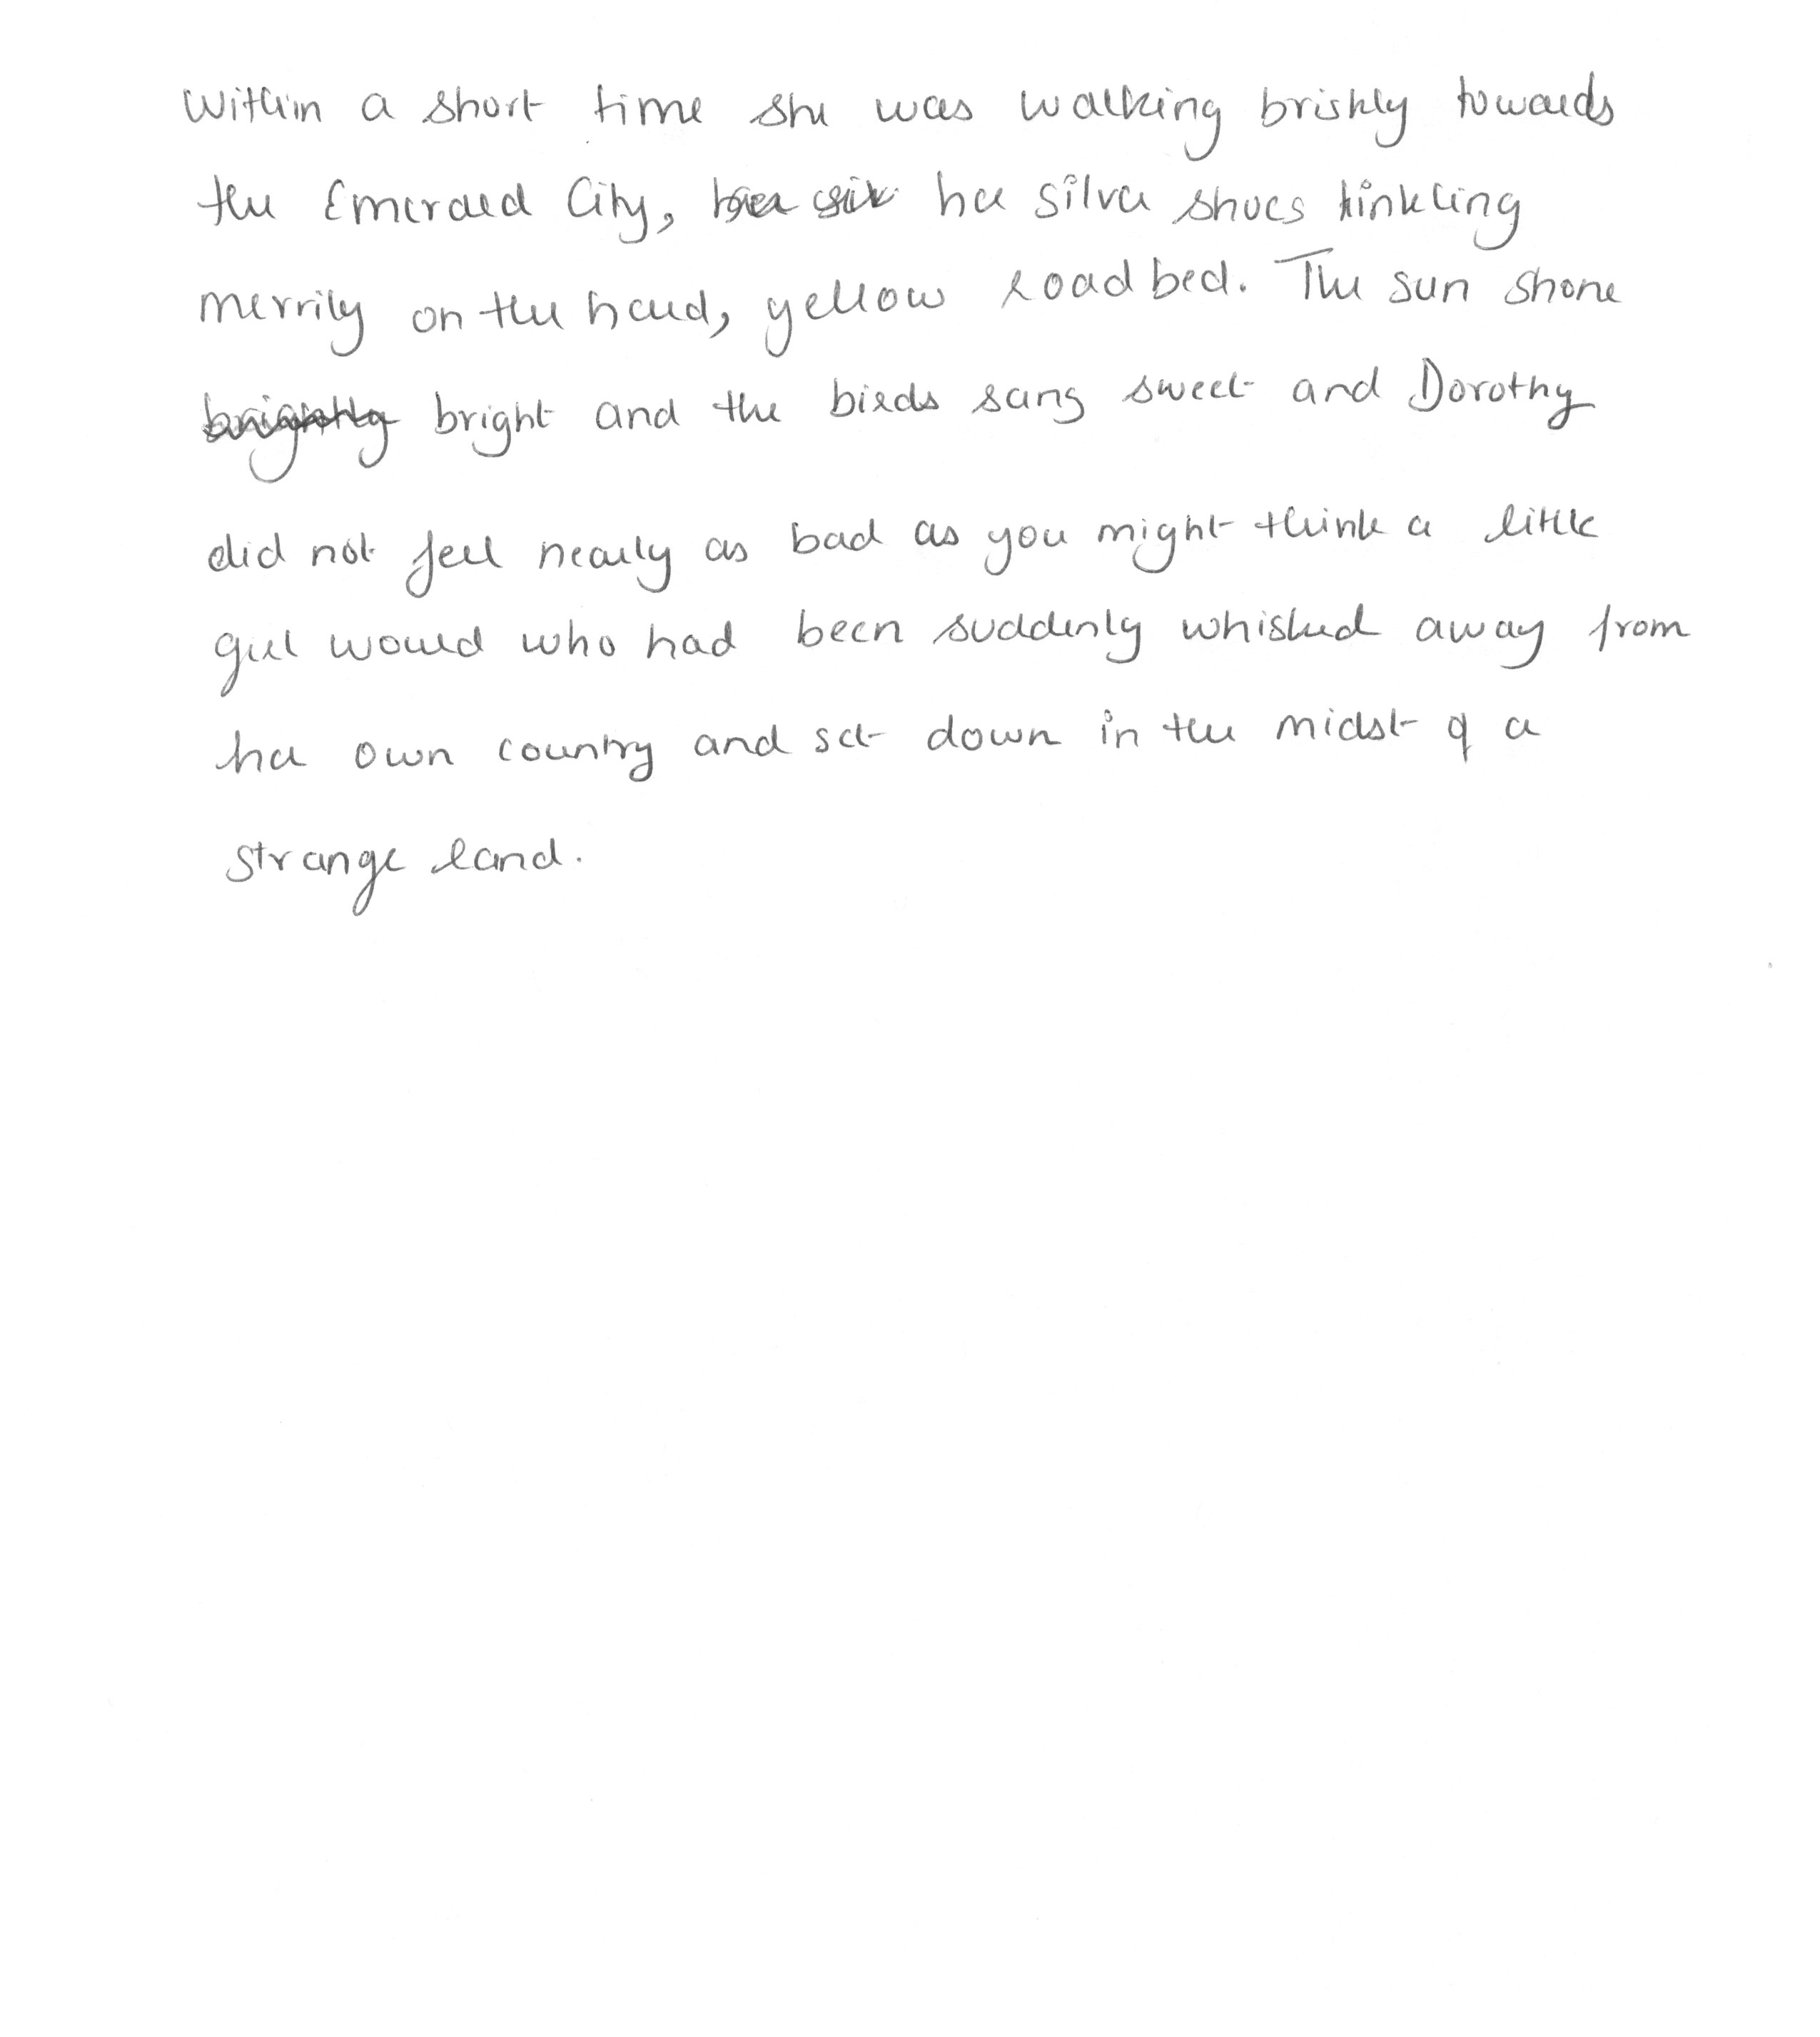 Within a short time she was walking briskly towards
the Emerald City, her silver shoes tinkling
merrily on the hard, yellow roadbed. The sun shone
brightly bright and the birds sang sweet and Dorothy
did not feel nearly as bad as you might think a little
girl would who had been suddenly whisked away from
her own country and set down in the midst of a
strange land.